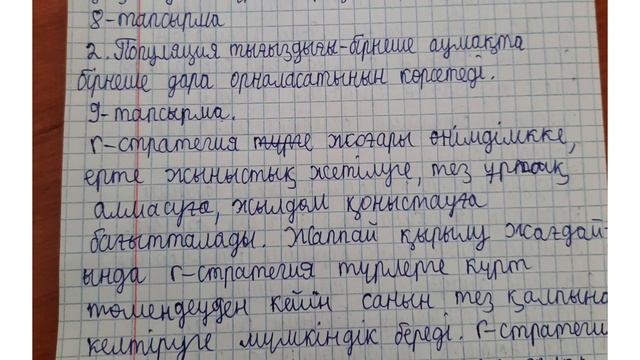 8-тапсырма
2. Популяция тығыздығы-бірнеше аумақта
бірнеше дара орналасатынын көрсетеді.
9-тапсырма.
r-стратегия жоғары өнімділікке,
ерте жыныстық жетілуге, тез ұрпақ
алмасуға, жылдам қоныстауға
бағытталады. Жаппай қырылу жағдай-
ында r-стратегия түрлерге күрт
төмендеуден кейін санын тез қалпына
келтіруге мүмкіндік береді. r-стратеги